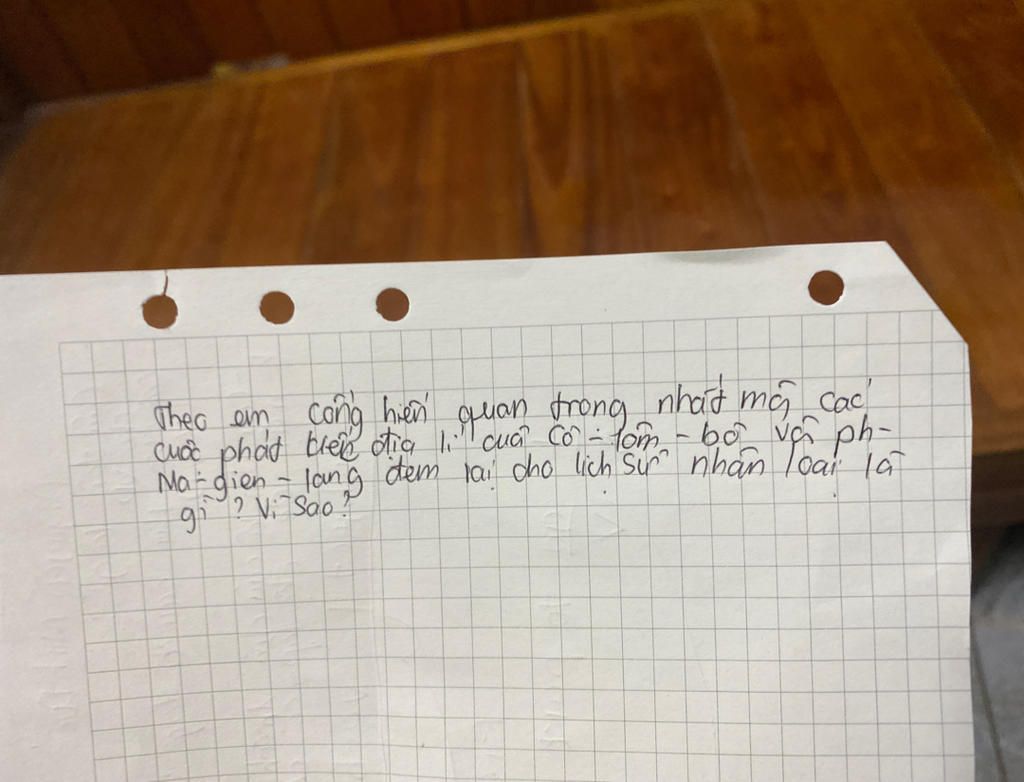 Theo em cống hiến quan trọng nhất mà các
cuộc phát kiến địa lí của Cô-lôm-bô và ph-
Ma-gien-lang đem lại cho lịch sử nhân loại là
gì? Vì sao?